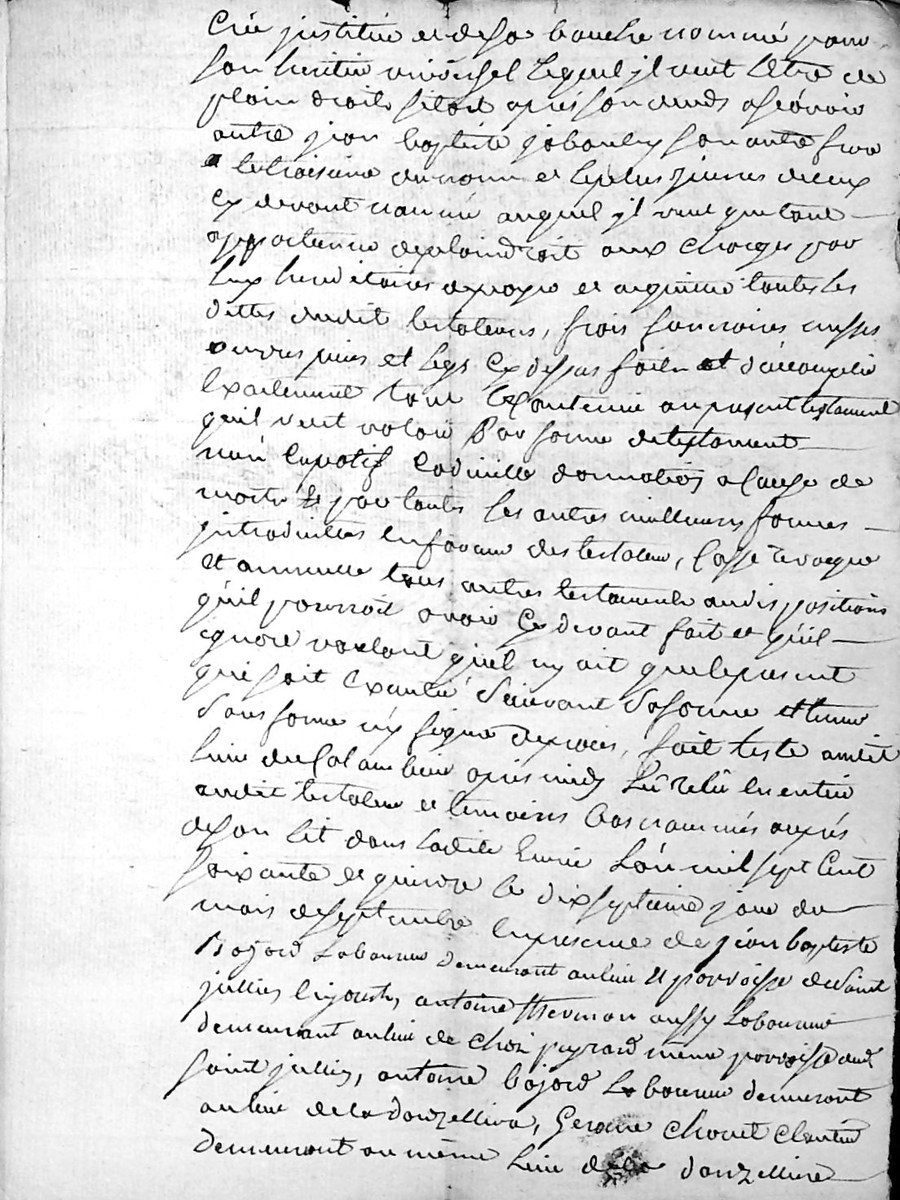 Crée justitué et de sa bouche nommé pour
son heritier universel lequel jl veut letre de
plain droit sitost apres son deceds ascavoir
autre jean baptiste son autre frere
le troisieme du nom et le plus jeunes deceux
cy devant nommé auquel jl veut que tout
appartienne de plain droit aux charges par
luy hereditaires de payer et acquitter toutes les
dettes dudit testateur, frois funeraires messes
œuvres pies et legs cy dessus faits et d'accomplir
Exactement tout le contenue au present testament
quil veut valoir Par forme de testament
nuncupatif Codicille donnation a Cause de
mort et par toutes les autres meilleures formes
jntroduittes en faveur des testateur, Casse revoque
et annulle tous autres testaments ou dispositions
qu'il pourroit avoir cy devant fait et qu'il
ignore voulant qu'il ny ait que le present
qui soit Exécuté suivant sa forme et teneur
sans forme n'y figure de proces, fait testé audit
lieu du apres midy Lû relû en entier
audit testateur et temoins bas nommés auprés
de son lit dans ladite Lán mil sept Cent
soixante et quinze le dixseptieme jour du
mois de septembre En presence de jean baptiste
Bajard Laboureur demeurant au lieu et parroisse de Saint
jullien antoine aussy Laboureur
demeurant au lieu de chez peyrard même parroisse dud
saint jullien, antoine bajard Laboureur demeurant
au lieu de la donzelliere,
demeurant au même Lieu de la donzelliere